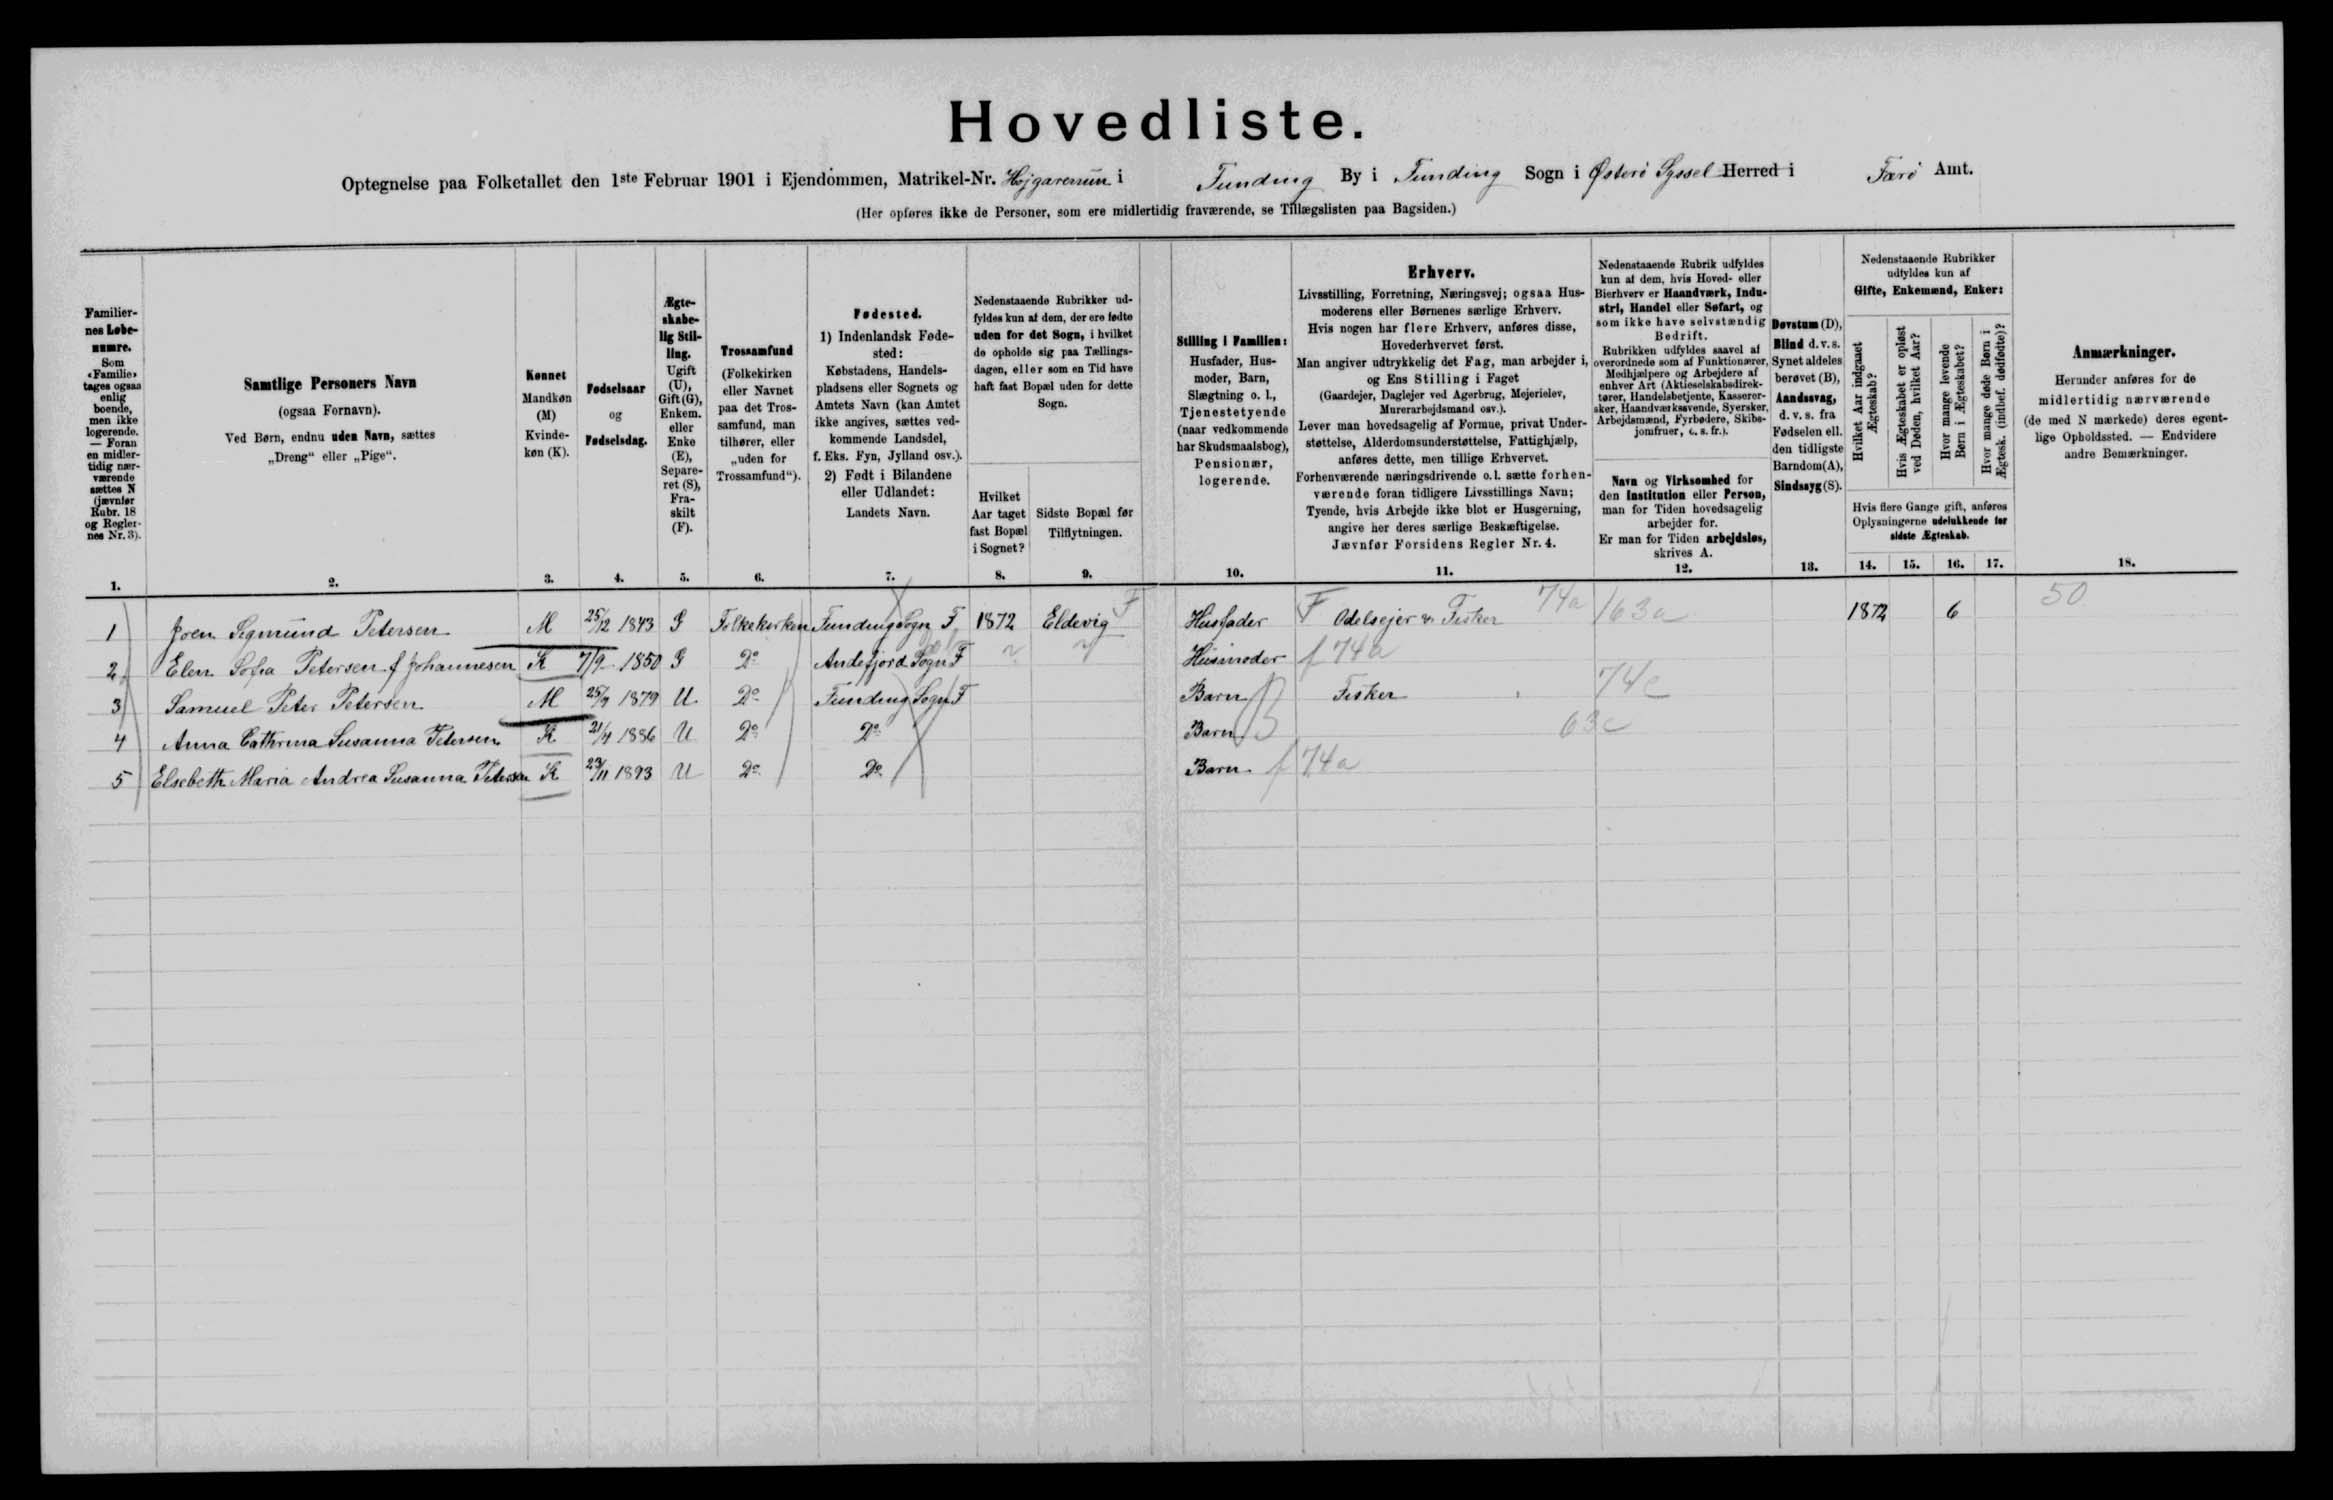 Hovedliste.
Optegnelse paa Folketallet den 1ste Februar 1901 i Ejendommen, Matrikel-Nr. Højgarenun i Funding By i Funding Sogn i Østerö Syssel Herred i Færö Amt.
(Her opføres ikke de Personer, som ere midlertidig fraværende, se Tillægslisten paa Bagsiden.)
Familiernes Løbenumre.
Som «Familie» tages ogsaa enlig boende, men ikke logerende. — Foran en midlertidig nærværende sættes N (jævnfør Rubr. 18 og Reglernes Nr. 3).
1.
Samtlige Personers Navn
(ogsaa Fornavn).
Ved Børn, endnu uden Navn, sættes
„Dreng“ eller „Pige“.
2.
Kønnet
Mandkøn
(M)
Kvinde-
køn (K).
3.
Fødselsaar
og
Fødselsdag.
4.
Ægte-
skabe-
lig Stil-
ling.
Ugift
(U),
Gift (G),
Enkem.
eller
Enke
(E),
Separe-
ret (S),
Fra-
skilt
(F).
5.
Trossamfund
(Folkekirken
eller Navnet
paa det Tros-
samfund, man
tilhører, eller
„uden for
Trossamfund“).
6.
Fødested.
1) Indenlandsk Føde-
sted:
Købstadens, Handels-
pladsens eller Sognets og
Amtets Navn (kan Amtet
ikke angives, sættes ved-
kommende Landsdel,
f. Eks. Fyn, Jylland osv.).
2) Født i Bilandene
eller Udlandet:
Landets Navn.
7.
Nedenstaaende Rubrikker ud-
fyldes kun af dem, der ere fødte
uden for det Sogn, i hvilket
de opholde sig paa Tællings-
dagen, eller som en Tid have
haft fast Bopæl uden for dette
Sogn.
Hvilket
Aar taget
fast Bopæl
i Sognet?
8.
Sidste Bopæl før
Tilflytningen.
9.
Stilling i Familien:
Husfader, Hus-
moder, Barn,
Slægtning o. l.,
Tjenestetyende
(naar vedkommende
har Skudsmaalsbog),
Pensionær,
logerende.
10.
Erhverv.
Livsstilling, Forretning, Næringsvej; ogsaa Hus-
moderens eller Børnenes særlige Erhverv.
Hvis nogen har flere Erhverv, anføres disse,
Hovederhvervet først.
Man angiver udtrykkelig det Fag, man arbejder i,
og Ens Stilling i Faget
(Gaardejer, Daglejer ved Agerbrug, Mejerielev,
Murerarbejdsmand osv.).
Lever man hovedsagelig af Formue, privat Under-
støttelse, Alderdomsunderstøttelse, Fattighjælp,
anføres dette, men tillige Erhvervet.
Forhenværende næringsdrivende o. l. sætte forhen-
værende foran tidligere Livsstillings Navn;
Tyende, hvis Arbejde ikke blot er Husgerning,
angive her deres særlige Beskæftigelse.
Jævnfør Forsidens Regler Nr. 4.
11.
Nedenstaaende Rubrik udfyldes
kun af dem, hvis Hoved- eller
Bierhverv er Haandværk, Indu-
stri, Handel eller Søfart, og
som ikke have selvstændig
Bedrift.
Rubrikken udfyldes saavel af
overordnede som af Funktionærer,
Medhjælpere og Arbejdere af
enhver Art (Aktieselskabsdirek-
tører, Handelsbetjente, Kasserer-
sker, Haandværkssvende, Syersker,
Arbejdsmænd, Fyrbødere, Skibs-
jomfruer, o. s. fr.).
Navn og Virksomhed for
den Institution eller Person,
man for Tiden hovedsagelig
arbejder for.
Er man for Tiden arbejdsløs,
skrives A.
12.
Døvstum (D),
Blind d. v. s.
Synet aldeles
berøvet (B),
Aandssvag,
d. v. s. fra
Fødselen ell.
den tidligste
Barndom (A),
Sindssyg (S).
13.
Nedenstaaende Rubrikker
udfyldes kun af
Gifte, Enkemænd, Enker:
Hvilket Aar indgaaet Ægteskab?
Hvis Ægteskabet er opløst ved Døden, hvilket Aar?
Hvor mange levende Børn i Ægteskabet?
Hvor mange døde Børn i Ægtesk. (indbef. dødfødte)?
Hvis flere Gange gift, anføres
Oplysningerne udelukkende for
sidste Ægteskab.
14. 15. 16. 17.
Anmærkninger.
Herunder anføres for de
midlertidig nærværende
(de med N mærkede) deres egent-
lige Opholdssted. — Endvidere
andre Bemærkninger.
18.
1 Joen Sigmund Petersen M 25/12 1843 G Folkekirken Funding Sogn F 1872 Eldevig F Husfader F Odelsejer & Fisker 74a 63a 1872 6 50
2 Elen Sofia Petersen f Johannesen K 7/9 1850 G Do Andefjord Sogn F Husmoder f 74a
3 Samuel Peter Petersen M 25/9 1879 U Do Funding Sogn F Barn Fisker 74c
4 Anna Cathrina Susanna Petersen K 21/4 1886 U Do Do Barn B 63c
5 Elsebeth Maria Andrea Susanna Petersen K 23/11 1893 U Do Do Barn f 74a